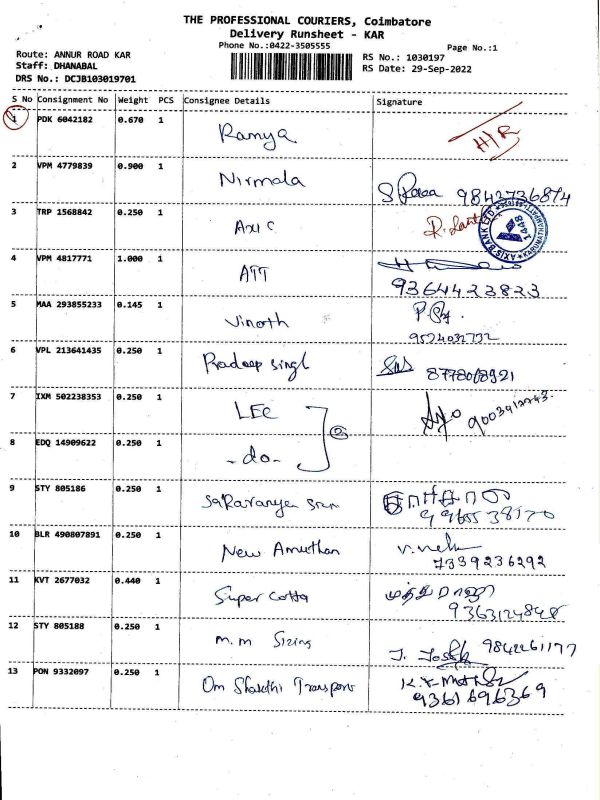 THE PROFESSIONAL COURIERS, Coimbatore
Delivery Runsheet - KAR
Phone No.:0422-3505555
Page No.:1
Route: ANNUR ROAD KAR
RS No.: 1030197
Staff: DHANABAL
RS Date: 29-Sep-2022
DRS No.: DCJB103019701
S No Consignment No Weight PCS Consignee Details Signature
1 PDK 6042182 0.670 1 Ramya H/R
2 VPM 4779839 0.900 1 Nirmala
3 TRP 1568842 0.250 1 Axic
AXIS BANK LTD 1448
4 VPM 4817771 1.000 1 ATT
9364423823
5 MAA 293855233 0.145 1 Vinoth
9524032732
6 VPL 213641435 0.250 1 Pradeep Singl
7 IXM 502238353 0.250 1 LEC
8 EDQ 14909622 0.250 1 -do-
9 STY 805186 0.250 1
10 BLR 490807891 0.250 1 New Amuthan
7339236292
11 KVT 2677032 0.440 1 Super Cotta
9363124848
12 STY 805188 0.250 1 M.M Sizing J. Joseph 9842261177
13 PON 9332097 0.250 1 Om Shakthi Transport
9361696369